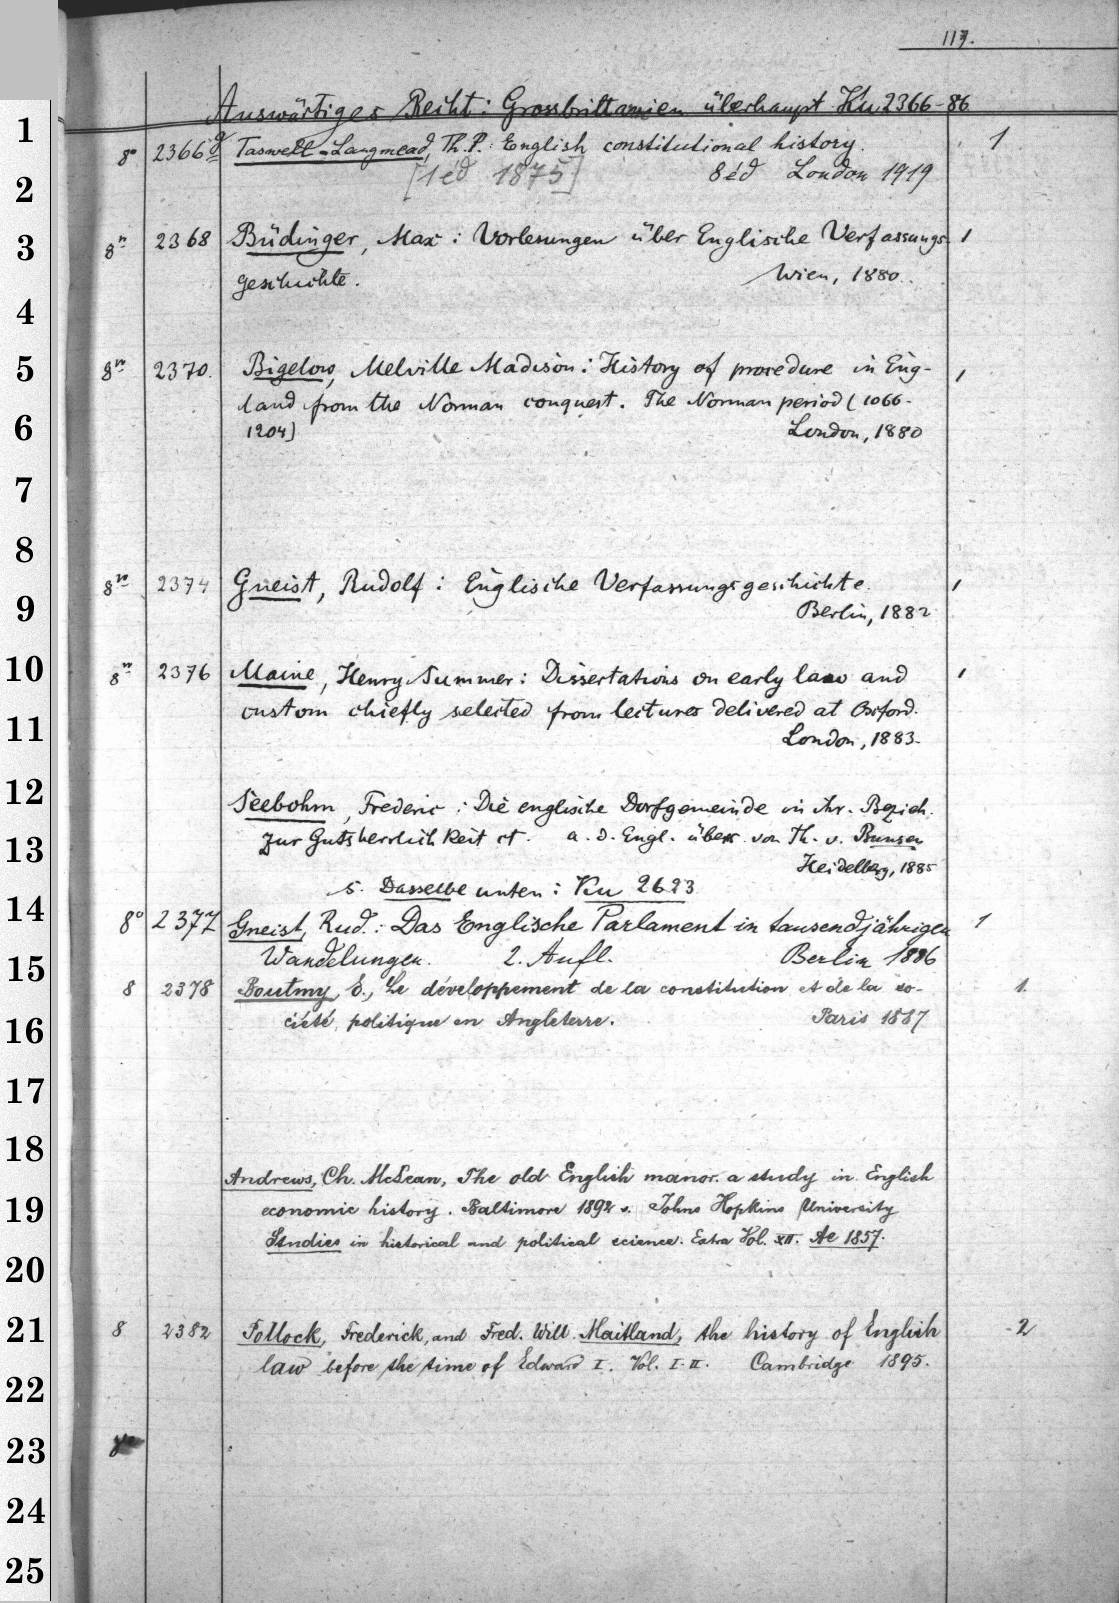 117.
Auswärtiges Recht: Grossbrittannien überhaupt Ku 2366-86
1
8° 2366g Taswell-Langmead, Th. P.: English constitutional history. 1
2
[1 éd 1875] 8 éd London 1919
3
8° 2368 Büdinger, Max: Vorlesungen über Englische Verfassungs- 1
geschichte. Wien, 1880.
4
5
8° 2370. Bigelow, Melville Madison: History of procedure in Eng- 1
land from the Norman conquest. The Norman period (1066-
6
1204) London, 1880
7
8
8° 2374 Gneist, Rudolf: Englische Verfassungsgeschichte. 1
9
Berlin, 1882
10
8° 2376 Maine, Henry Summer: Dissertations on early law and 1
custom chiefly selected from lectures delivered at Oxford.
11
London, 1883.
12
Seebohm, Frederic: Die englische Dorfgemeinde in ihr. Bezieh.
zur Gutsherrlichkeit et. a. d. Engl. übers. von Th. v. Bunsen
13
Heidelberg, 1885
s. Dasselbe unten: Ku 2623
14
8° 2377 Gneist, Rud.: Das Englische Parlament in tausendjährigen 1
15
Wandelungen. 2. Aufl. Berlin 1886
8 2378 Boutmy, E., Le développement de la constitution et de la so- 1.
16
ciété politique en Angleterre. Paris 1887
17
18
Andrews, Ch. McLean, The old English manor. a study in English
19
economic history. Baltimore 1892 v. Johns Hopkins University
Studies in historical and political science. Extra Vol. XII. Ae 1857.
20
21
8 2382 Pollock, Frederick, and Fred. Will. Maitland, the history of English 2
law before the time of Edward I. Vol. I-II. Cambridge 1895.
22
23
24
25